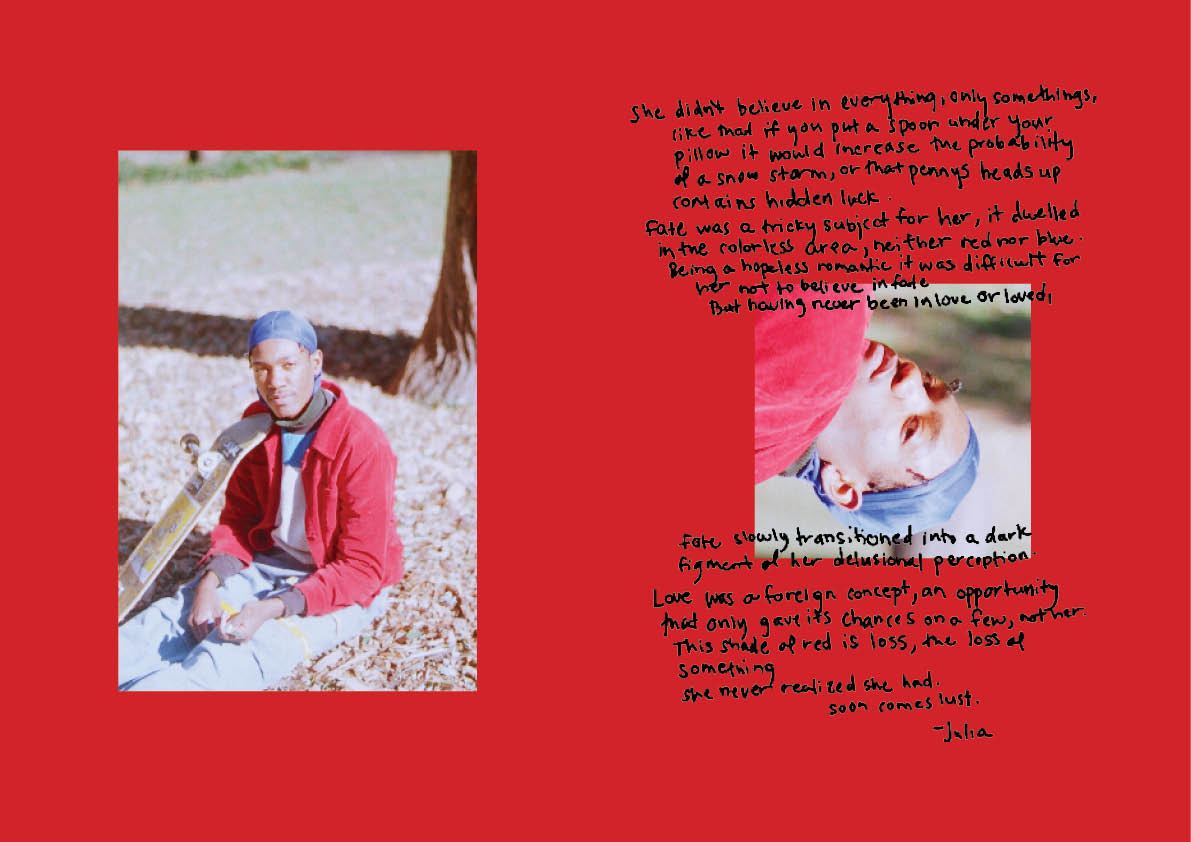 She didn't believe in everything, only somethings,
like that if you put a spoon under your
pillow it would increase the probability
of a snow storm, or that pennys heads up
contains hidden luck.
Fate was a tricky subject for her, it dwelled
in the colorless area, neither red nor blue.
Being a hopeless romantic it was difficult for
her not to believe in fate
But having never been in love or loved,
Fate slowly transitioned into a dark
figment of her delusional perception.
Love was a foreign concept, an opportunity
that only gave its chances on a few, not her.
This shade of red is loss, the loss of
something
she never realized she had.
soon comes lust.
-Julia